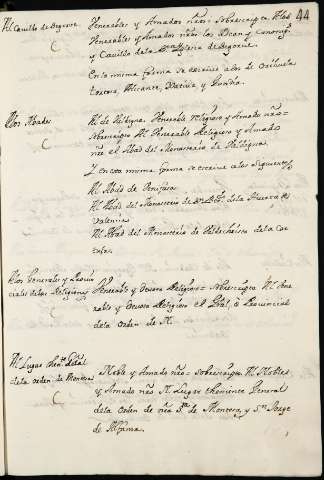 44
Al Cavildo de Segorve. Venerables y Amados nros. Sobrescripto. A los
Venerables y Amados nros los Dean y Canonigos
y Cavildo de la Sta Yglesia de Segorve.
En la misma forma se escrive a los de Orihuela
Alicante, y
A los Abades
C
Al de Valdigna. Venerable Religioso y Amado nro=
Sobrescripto Al Venerable Religioso y Amado
nro el Abad del Monasterio de Valdigna.
Y en esta misma forma se escrive a los siguientes
Al Abad de Benifaza
Al Abad del Monasterio de Sn de la Huerta de
Valencia
Al Abad del Monasterio de la
A los Generales y Provin
ciales de las Religiones
C
Venerable y Devoto Religioso= Sobrescripto Al Vene
rable y Devoto Religioso el Gral, o Provincial
de la Orden de N.
Al Lugar Thente Gral
de la orden de Montesa
C
Noble y Amado nro= Sobrescripto Al Noble
y Amado nro N. Lugar Theniente General
de la Orden de nra Sra de Montesa, y Sn Jorge
de Alfama.